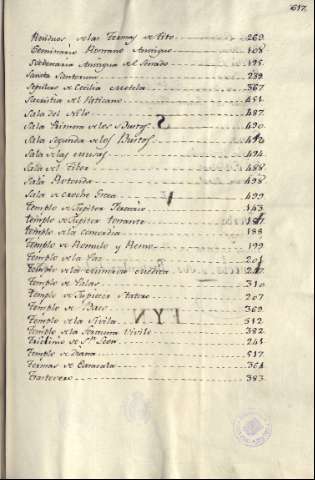 617.
Residuos de las Termas de Tito 269
Seminario Romano Antiguo 108
Secretaria Antigua del Senado 195
Sancta Sanctorum 289
Sepulcro de Cecilia Metela 367
Sacristia del Vaticano 451
Sala del Nilo 487
Sala Primera de los Bustos 490
Sala Segunda de los Bustos
Sala de las musas 494
Sala del Tiber 488
Sala Rotonda 498
Sala de Croche Greca 499
Templo de Jupiter Feretrio 143
Templo de Jupiter tonante
Templo de la Concordia 188
Templo de Romulo y Remo 199
Templo de la Paz 201
Templo de la Minerva Medica
Templo de Palas 310
Templo de Jupiter Stator 207
Templo de Baco 369
Templo de la Sivila 512
Templo de la Fortuna Virile 382
Triclinio de Sn. Leon 241
Templo de Diana 517
Termas de Caracala 361
Trastevere 383